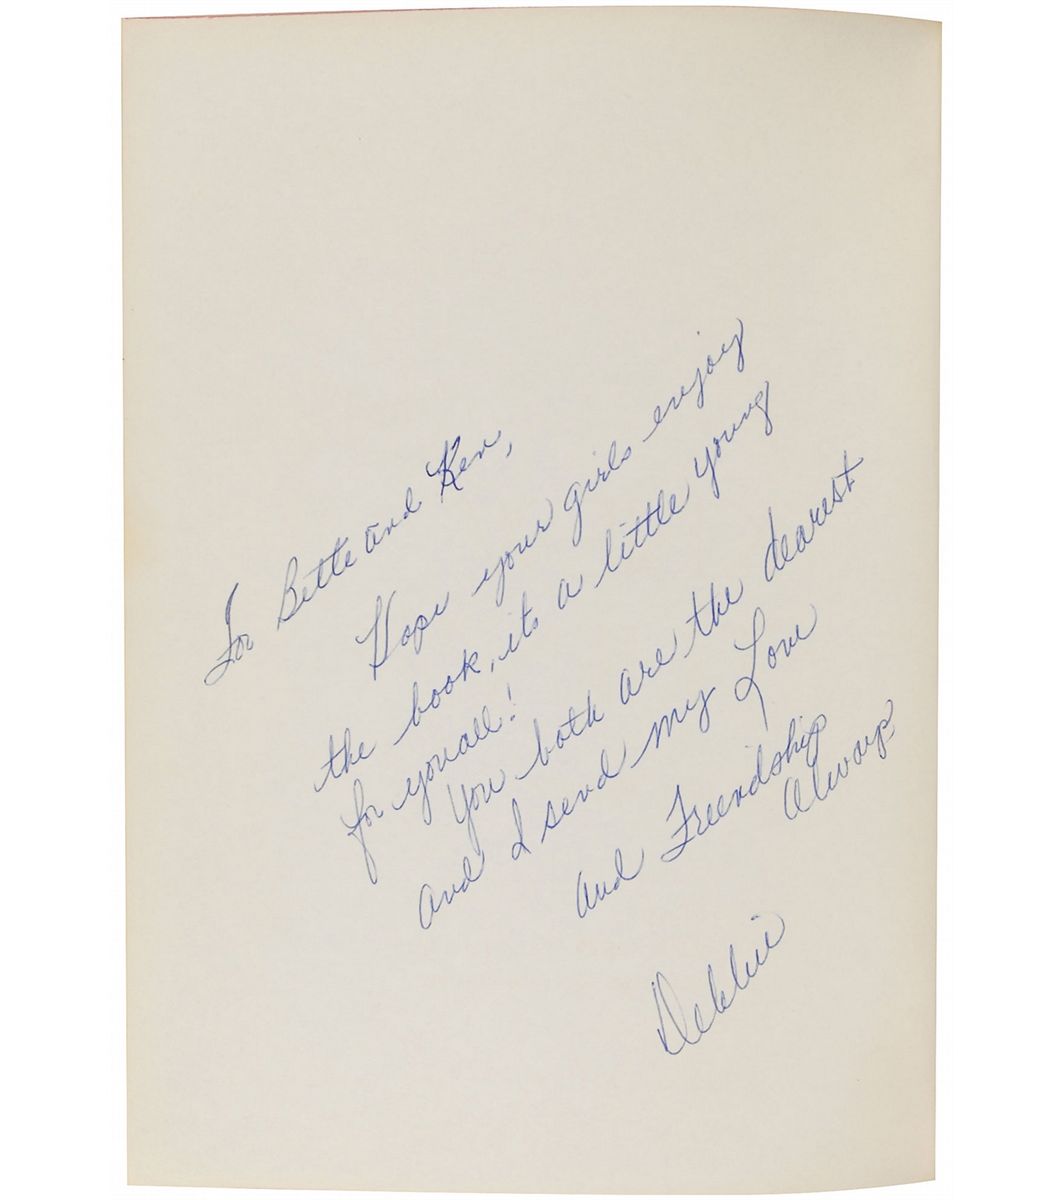 For Bette and Ken,
Hope your girls enjoy
the book, its a little young
for you all!
You both are the dearest
and I send my Love
and Freendship
always
Debbie